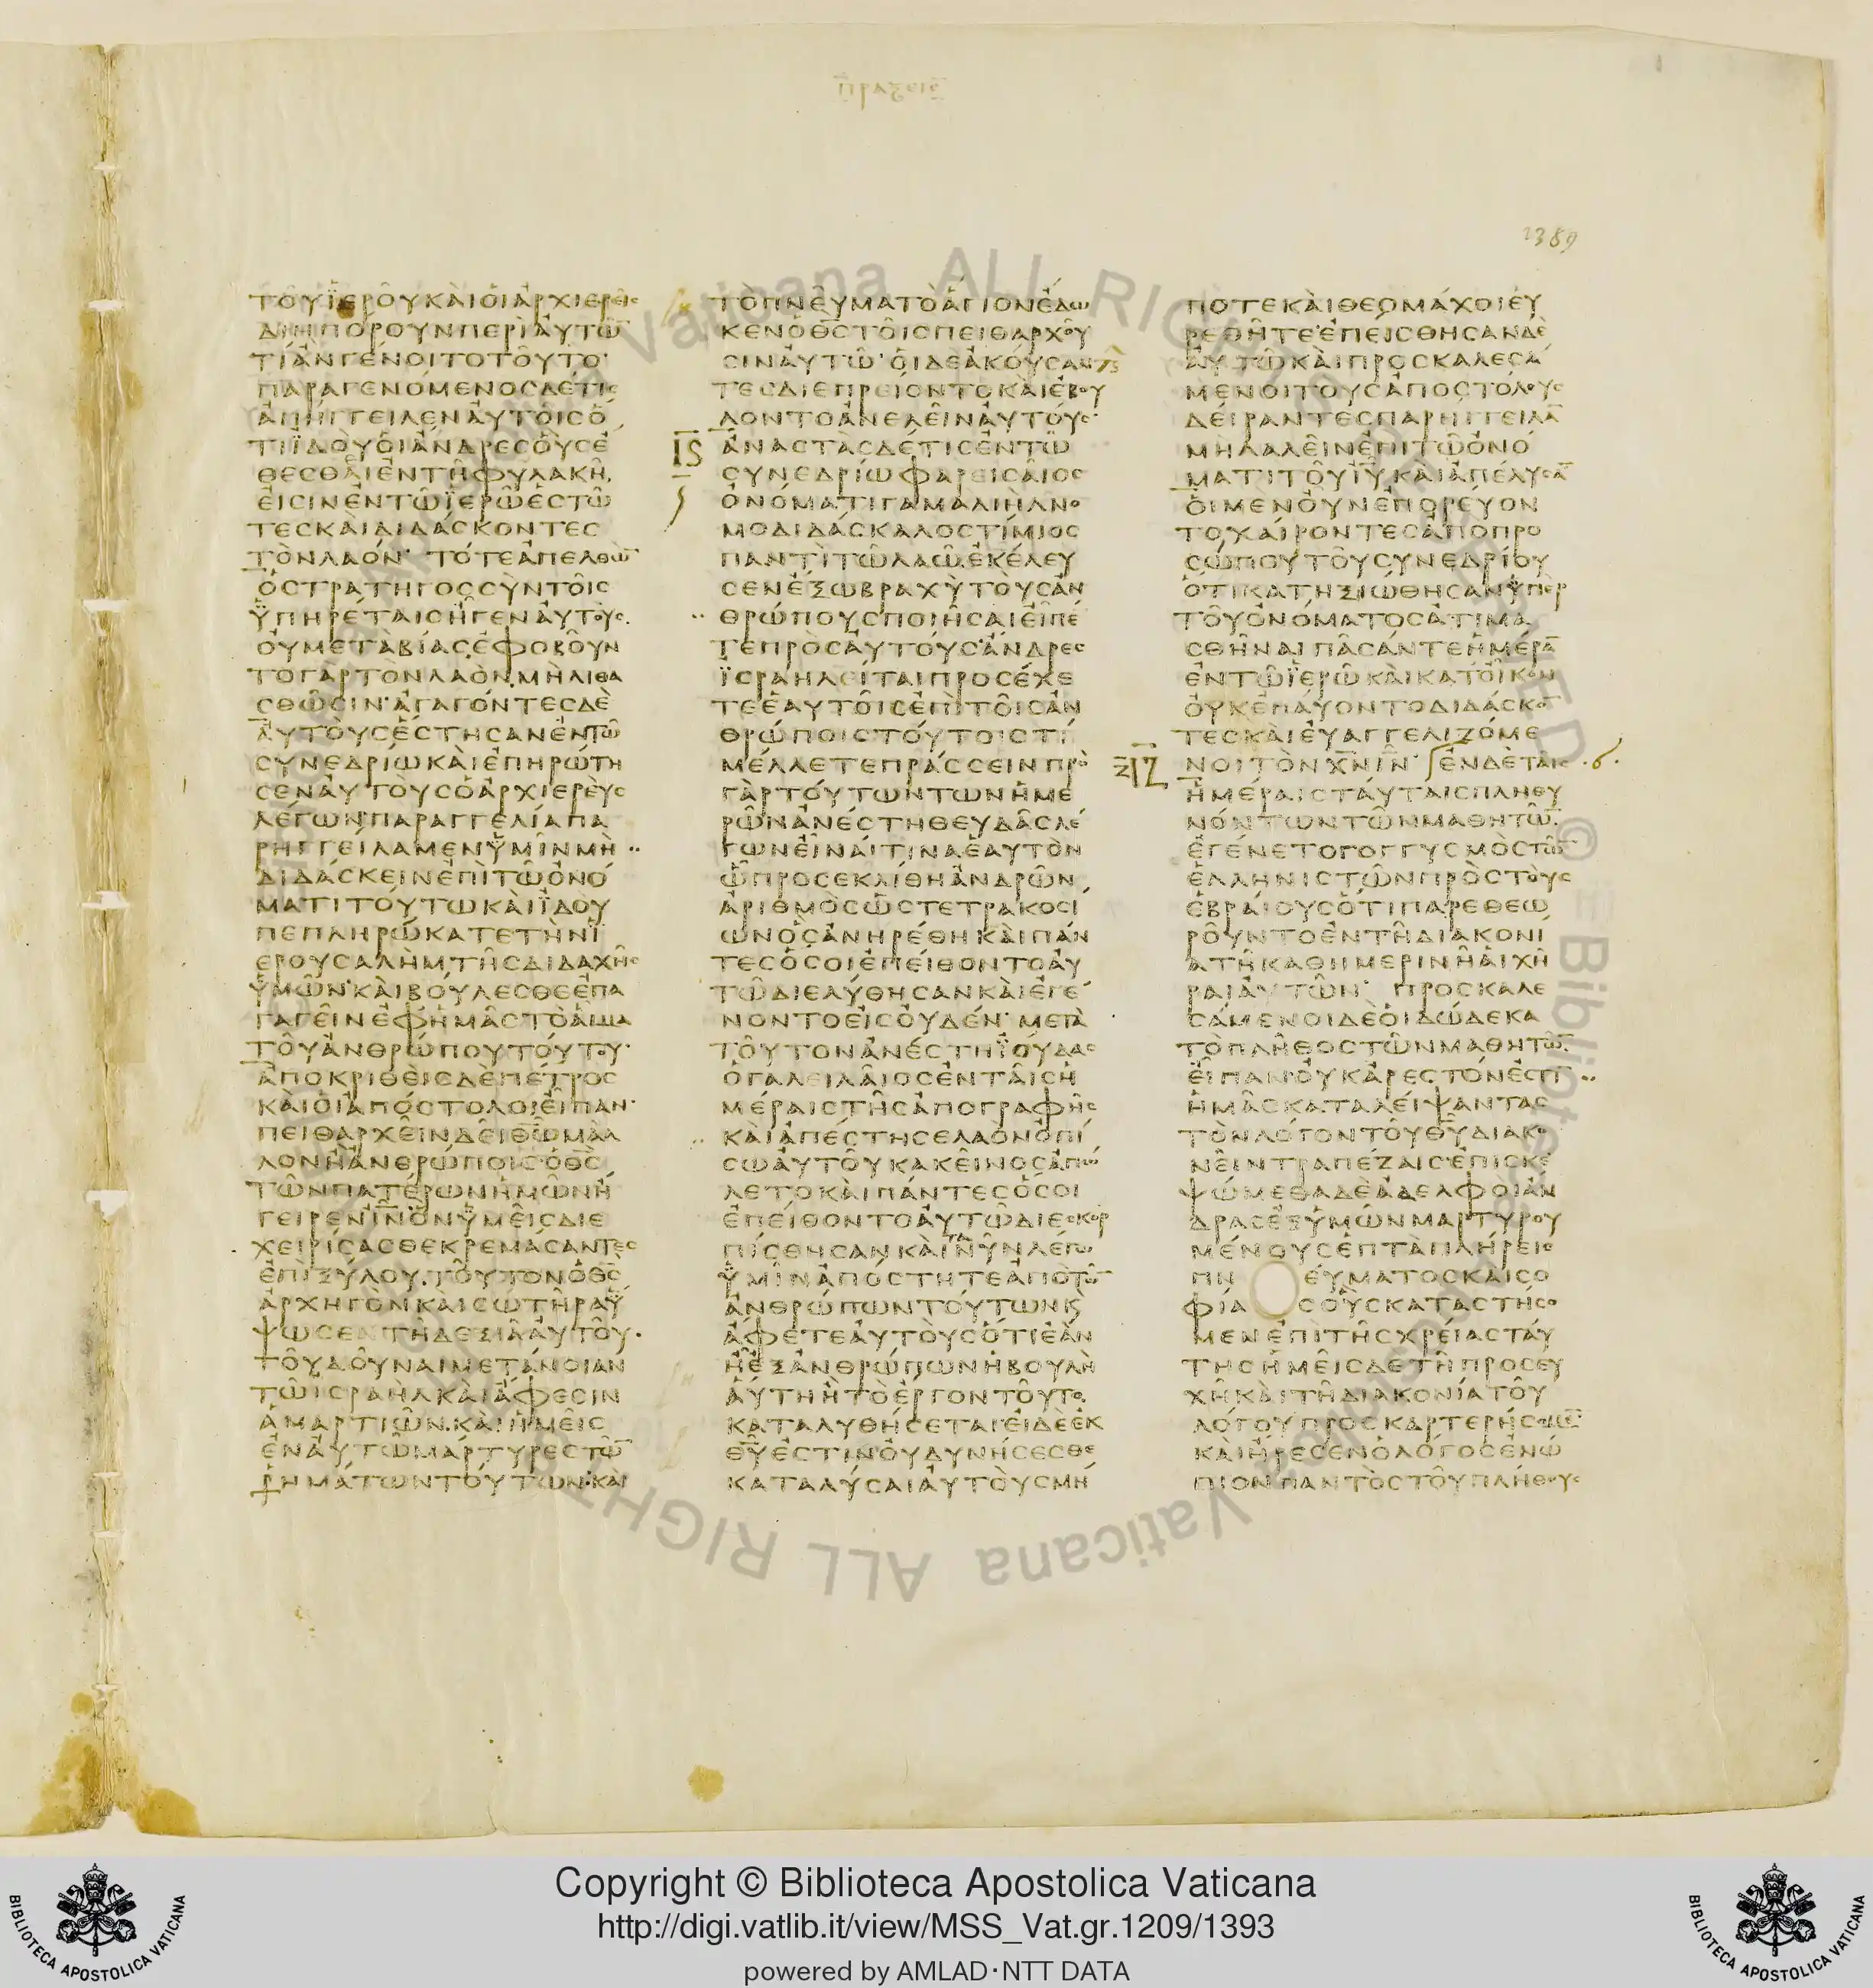 1389
ΤΟΥΪΕΡΟΥΚΑΙΟΙΑΡΧΙΕΡΕΙϹ
ΔΙΗΠΟΡΟΥΝΠΕΡΙΑΥΤΩ̅
ΤΙΑΝΓΕΝΟΙΤΟΤΟΥΤΟ·
ΠΑΡΑΓΕΝΟΜΕΝΟϹΔΕΤΙϹ
ΑΠΗΓΓΕΙΛΕΝΑΥΤΟΙϹΟ
ΤΙΪΔΟΥΟΙΑΝΔΡΕϹΟΥϹΕ
ΘΕϹΘΑΙΕΝΤΗΦΥΛΑΚΗ
ΕΙϹΙΝΕΝΤΩΪΕΡΩΕϹΤΩ
ΤΕϹΚΑΙΔΙΔΑϹΚΟΝΤΕϹ
ΤΟΝΛΑΟΝ· ΤΟΤΕΑΠΕΛΘΩ̅
ΟϹΤΡΑΤΗΓΟϹϹΥΝΤΟΙϹ
ΫΠΗΡΕΤΑΙϹΗΓΕΝΑΥΤΟΥϹ
ΟΥΜΕΤΑΒΙΑϹΕΦΟΒΟΥΝ
ΤΟΓΑΡΤΟΝΛΑΟΝΜΗΛΙΘΑ
ϹΘΩϹΙΝ·ΑΓΑΓΟΝΤΕϹΔΕ
ΑΥΤΟΥϹΕϹΤΗϹΑΝΕΝΤΩ
ϹΥΝΕΔΡΙΩΚΑΙΕΠΗΡΩΤΗ
ϹΕΝΑΥΤΟΥϹΟΑΡΧΙΕΡΕΥϹ
ΛΕΓΩΝΠΑΡΑΓΓΕΛΙΑΠΑ
ΡΗΓΓΕΙΛΑΜΕΝΫΜΙΝΜΗ
ΔΙΔΑϹΚΕΙΝΕΠΙΤΩΟΝΟ
ΜΑΤΙΤΟΥΤΩΚΑΙΪΔΟΥ
ΠΕΠΛΗΡΩΚΑΤΕΤΗΝΪ
ΕΡΟΥϹΑΛΗΜΤΗϹΔΙΔΑΧΗϹ
ΫΜΩΝ·ΚΑΙΒΟΥΛΕϹΘΕΕΠΑ
ΓΑΓΕΙΝΕΦΗΜΑϹΤΟΑΙΜΑ
ΤΟΥΑΝΘΡΩΠΟΥΤΟΥΤΟΥ·
ΑΠΟΚΡΙΘΕΙϹΔΕΠΕΤΡΟϹ
ΚΑΙΟΙΑΠΟϹΤΟΛΟΙΕΙΠΑΝ·
ΠΕΙΘΑΡΧΕΙΝΔΕΙΘ̅Ω̅ΜΑΛ
ΛΟΝΗΑΝΘΡΩΠΟΙϹ·ΟΘ̅Ϲ̅
ΤΩΝΠΑΤΕΡΩΝΗΜΩΝΗ
ΓΕΙΡΕΝΙ̅Ν̅ΟΝΫΜΕΙϹΔΙΕ
ΧΕΙΡΙϹΑϹΘΕΚΡΕΜΑϹΑΝΤΕϹ
ΕΠΙΞΥΛΟΥ·ΤΟΥΤΟΝΟΘ̅Ϲ̅
ΑΡΧΗΓΟΝΚΑΙϹΩΤΗΡΑΫ
ΨΩϹΕΝΤΗΔΕΞΙΑΑΥΤΟΥ·
ΤΟΥΔΟΥΝΑΙΜΕΤΑΝΟΙΑΝ
ΤΩΙϹΡΑΗΛΚΑΙΑΦΕϹΙΝ
ΑΜΑΡΤΙΩΝ·ΚΑΙΗΜΕΙϹ
ΕΝΑΥΤΩΜΑΡΤΥΡΕϹΤΩ̅
ΡΗΜΑΤΩΝΤΟΥΤΩΝ·ΚΑΙ
ΤΟΠΝΕΥΜΑΤΟΑΓΙΟΝΕΔΩ
ΚΕΝΟΘ̅Ϲ̅ΤΟΙϹΠΕΙΘΑΡΧΟΥ
ϹΙΝΑΥΤΩ·ΟΙΔΕΑΚΟΥϹΑΝ
ΤΕϹΔΙΕΠΡΕΙΟΝΤΟΚΑΙΕΒΟΥ
ΛΟΝΤΟΑΝΕΛΕΙΝΑΥΤΟΥϹ·
Ι̅Ϛ̅ ΑΝΑϹΤΑϹΔΕΤΙϹΕΝΤΩ
ϹΥΝΕΔΡΙΩΦΑΡΕΙϹΑΙΟϹ
ΟΝΟΜΑΤΙΓΑΜΑΛΙΗΛΝΟ
ΜΟΔΙΔΑϹΚΑΛΟϹΤΙΜΙΟϹ
ΠΑΝΤΙΤΩΛΑΩΕΚΕΛΕΥ
ϹΕΝΕΞΩΒΡΑΧΥΤΟΥϹΑΝ
ΘΡΩΠΟΥϹΠΟΙΗϹΑΙΕΙΠΕ
ΤΕΠΡΟϹΑΥΤΟΥϹ·ΑΝΔΡΕϹ
ΪϹΡΑΗΛΕΙΤΑΙΠΡΟϹΕΧΕ
ΤΕΕΑΥΤΟΙϹΕΠΙΤΟΙϹΑΝ
ΘΡΩΠΟΙϹΤΟΥΤΟΙϹΤΙ
ΜΕΛΛΕΤΕΠΡΑϹϹΕΙΝΠΡΟ
ΓΑΡΤΟΥΤΩΝΤΩΝΗΜΕ
ΡΩΝΑΝΕϹΤΗΘΕΥΔΑϹΛΕ
ΓΩΝΕΙΝΑΙΤΙΝΑΕΑΥΤΟΝ
ΩΠΡΟϹΕΚΛΙΘΗΑΝΔΡΩΝ
ΑΡΙΘΜΟϹΩϹΤΕΤΡΑΚΟϹΙ
ΩΝΟϹΑΝΗΡΕΘΗΚΑΙΠΑΝ
ΤΕϹΟϹΟΙΕΠΕΙΘΟΝΤΟΑΥ
ΤΩΔΙΕΛΥΘΗϹΑΝΚΑΙΕΓΕ
ΝΟΝΤΟΕΙϹΟΥΔΕΝ· ΜΕΤΑ
ΤΟΥΤΟΝΑΝΕϹΤΗΪΟΥΔΑϹ
ΟΓΑΛΕΙΛΑΙΟϹΕΝΤΑΙϹΗ
ΜΕΡΑΙϹΤΗϹΑΠΟΓΡΑΦΗϹ
ΚΑΙΑΠΕϹΤΗϹΕΛΑΟΝΟΠΙ
ϹΩΑΥΤΟΥΚΑΚΕΙΝΟϹΑΠΩ
ΛΕΤΟΚΑΙΠΑΝΤΕϹΟϹΟΙ
ΕΠΕΙΘΟΝΤΟΑΥΤΩΔΙΕϹΚΟΡ
ΠΙϹΘΗϹΑΝΚΑΙΝΥΝΛΕΓΩ
ΫΜΙΝΑΠΟϹΤΗΤΕΑΠΟΤΩ̅
ΑΝΘΡΩΠΩΝΤΟΥΤΩΝΚ
ΑΦΕΤΕΑΥΤΟΥϹΟΤΙΕΑΝ
ΗΕΞΑΝΘΡΩΠΩΝΗΒΟΥΛΗ
ΑΥΤΗΗΤΟΕΡΓΟΝΤΟΥΤΟ
ΚΑΤΑΛΥΘΗϹΕΤΑΙΕΙΔΕΕΚ
Θ̅Υ̅ΕϹΤΙΝΟΥΔΥΝΗϹΕϹΘΕ
ΚΑΤΑΛΥϹΑΙΑΥΤΟΥϹΜΗ
ΠΟΤΕΚΑΙΘΕΟΜΑΧΟΙΕΥ
ΡΕΘΗΤΕ·ΕΠΕΙϹΘΗϹΑΝΔΕ
ΑΥΤΩΚΑΙΠΡΟϹΚΑΛΕϹΑ
ΜΕΝΟΙΤΟΥϹΑΠΟϹΤΟΛΟΥϹ
ΔΕΙΡΑΝΤΕϹΠΑΡΗΓΓΕΙΛΑ̅
ΜΗΛΑΛΕΙΝΕΠΙΤΩΟΝΟ
ΜΑΤΙΤΟΥΙ̅Υ̅ΚΑΙΑΠΕΛΥϹΑ̅
ΟΙΜΕΝΟΥΝΕΠΟΡΕΥΟΝ
ΤΟΧΑΙΡΟΝΤΕϹΑΠΟΠΡΟ
ϹΩΠΟΥΤΟΥϹΥΝΕΔΡΙΟΥ
ΟΤΙΚΑΤΗΞΙΩΘΗϹΑΝΫΠΕΡ
ΤΟΥΟΝΟΜΑΤΟϹΑΤΙΜΑ
ϹΘΗΝΑΙΠΑϹΑΝΤΕΗΜΕΡΑ̅
ΕΝΤΩΪΕΡΩΚΑΙΚΑΤΟΙΚΟΝ
ΟΥΚΕΠΑΥΟΝΤΟΔΙΔΑϹΚΟ̅
ΤΕϹΚΑΙΕΥΑΓΓΕΛΙΖΟΜΕ
Ι̅Ζ̅ ΝΟΙΤΟΝΧ̅Ν̅Ι̅Ν̅· ΕΝΔΕΤΑΙϹ
ΗΜΕΡΑΙϹΤΑΥΤΑΙϹΠΛΗΘΥ
ΝΟΝΤΩΝΤΩΝΜΑΘΗΤΩ̅
ΕΓΕΝΕΤΟΓΟΓΓΥϹΜΟϹΤΩ̅
ΕΛΛΗΝΙϹΤΩΝΠΡΟϹΤΟΥϹ
ΕΒΡΑΙΟΥϹΟΤΙΠΑΡΕΘΕΩ
ΡΟΥΝΤΟΕΝΤΗΔΙΑΚΟΝΙ
ΑΤΗΚΑΘΗΜΕΡΙΝΗΑΙΧΗ
ΡΑΙΑΥΤΩΝ· ΠΡΟϹΚΑΛΕ
ϹΑΜΕΝΟΙΔΕΟΙΔΩΔΕΚΑ
ΤΟΠΛΗΘΟϹΤΩΝΜΑΘΗΤΩ̅
ΕΙΠΑΝ·ΟΥΚΑΡΕϹΤΟΝΕϹΤΙ
ΗΜΑϹΚΑΤΑΛΕΙΨΑΝΤΑϹ
ΤΟΝΛΟΓΟΝΤΟΥΘ̅Υ̅ΔΙΑΚΟ
ΝΕΙΝΤΡΑΠΕΖΑΙϹ·ΕΠΙϹΚΕ
ΨΩΜΕΘΑΔΕΑΔΕΛΦΟΙΑΝ
ΔΡΑϹΕΞΥΜΩΝΜΑΡΤΥΡΟΥ
ΜΕΝΟΥϹΕΠΤΑΠΛΗΡΕΙϹ
ΠΝ ΕΥΜΑΤΟϹΚΑΙϹΟ
ΦΙΑ ϹΟΥϹΚΑΤΑϹΤΗϹΟ
ΜΕΝΕΠΙΤΗϹΧΡΕΙΑϹΤΑΥ
ΤΗϹΗΜΕΙϹΔΕΤΗΠΡΟϹΕΥ
ΧΗΚΑΙΤΗΔΙΑΚΟΝΙΑΤΟΥ
ΛΟΓΟΥΠΡΟϹΚΑΡΤΕΡΗϹΟΜΕ̅
ΚΑΙΗΡΕϹΕΝΟΛΟΓΟϹΕΝΩ
ΠΙΟΝΠΑΝΤΟϹΤΟΥΠΛΗΘΟΥϹ
Vaticana ALL RIGHT
Copyright © Biblioteca Apostolica Vaticana
http://digi.vatlib.it/view/MSS_Vat.gr.1209/1393
powered by AMLAD·NTT DATA
BIBLIOTECA APOSTOLICA VATICANA
BIBLIOTECA APOSTOLICA VATICANA